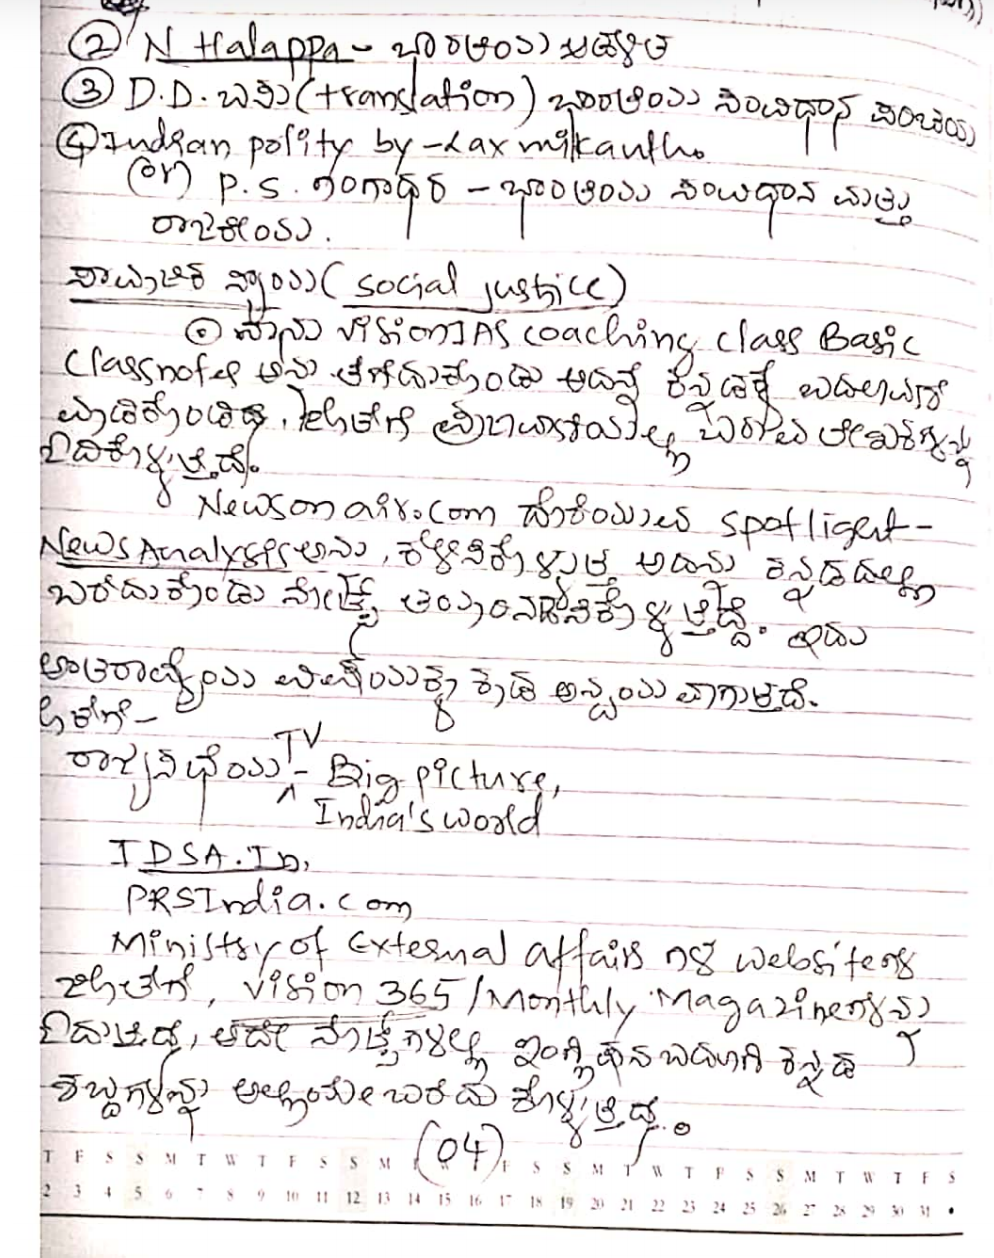 ② N Halappa - ಭಾರತೀಯ
③ D.D. ಬಸು (translation) ಭಾರತೀಯ ಸಂವಿಧಾನ ಪರಿಚಯ
④ Indian polity by - Laxmikanth.
(or) P.S. ಗಂಗಾಧರ - ಭಾರತೀಯ ಸಂವಿಧಾನ ಮತ್ತು
ರಾಜಕೀಯ.
ಸಾಮಾಜಿಕ ನ್ಯಾಯ (social justice)
⊙ ನಾನು vision IAS coaching class Basic
Classnotes ಅನು ತೆಗೆದುಕೊಂಡು ಅದನ್ನೆ ಕನ್ನಡಕ್ಕೆ ಬದಲಾವಣೆ
ಮಾಡಿಕೊಂಡಿದ್ದೆ. ಜೊತೆಗೆ ಪ್ರಜಾವಾಣಿಯಲ್ಲಿ ಬರುವ ಲೇಖನಗಳನ್ನು
ಓದಿಕೊಳ್ಳುತ್ತಿದ್ದೆ.
Newsonair.com ದೊರೆಯುವ spotlight -
News Analysis ಅನು, ಕೇಳಿಸಿಕೊಳ್ಳುತ್ತ ಅದನು ಕನ್ನಡದಲ್ಲಿ
ಬರೆದುಕೊಂಡು ನೋಟ್ಸ್ ತಯಾರಿಸಿಕೊಳ್ಳುತ್ತಿದ್ದೆ. ಇದು
ಅಂತರಾಷ್ಟ್ರೀಯ ವಿಷಯಕ್ಕೆ ಕೂಡ ಅನ್ವಯವಾಗುತ್ತದೆ.
ಜೊತೆಗೆ -
ರಾಜ್ಯಸಭೆಯ TV - Big picture,
India's world
IDSA.In,
PRSIndia.com
Ministry of External affairs ಗಳ websiteಗಳ
ಜೊತೆಗೆ, Vision 365 / Monthly Magazineಗಳನ್ನು
ಓದುತ್ತಿದ್ದೆ, ಅದೇ ನೋಟ್ಸ್‌ಗಳಲ್ಲಿ ಇಂಗ್ಲಿಷಿನ ಬದಲಾಗಿ ಕನ್ನಡ
ಶಬ್ದಗಳನ್ನು ಅಲ್ಲಿಯೇ ಬರೆದು ಕೊಳ್ಳುತ್ತಿದ್ದೆ.
(04)
T F S S M T W T F S S M F S S M T W T F S S M T W T F S
2 3 4 5 6 7 8 9 10 11 12 13 14 15 16 17 18 19 20 21 22 23 24 25 26 27 28 29 30 31 •